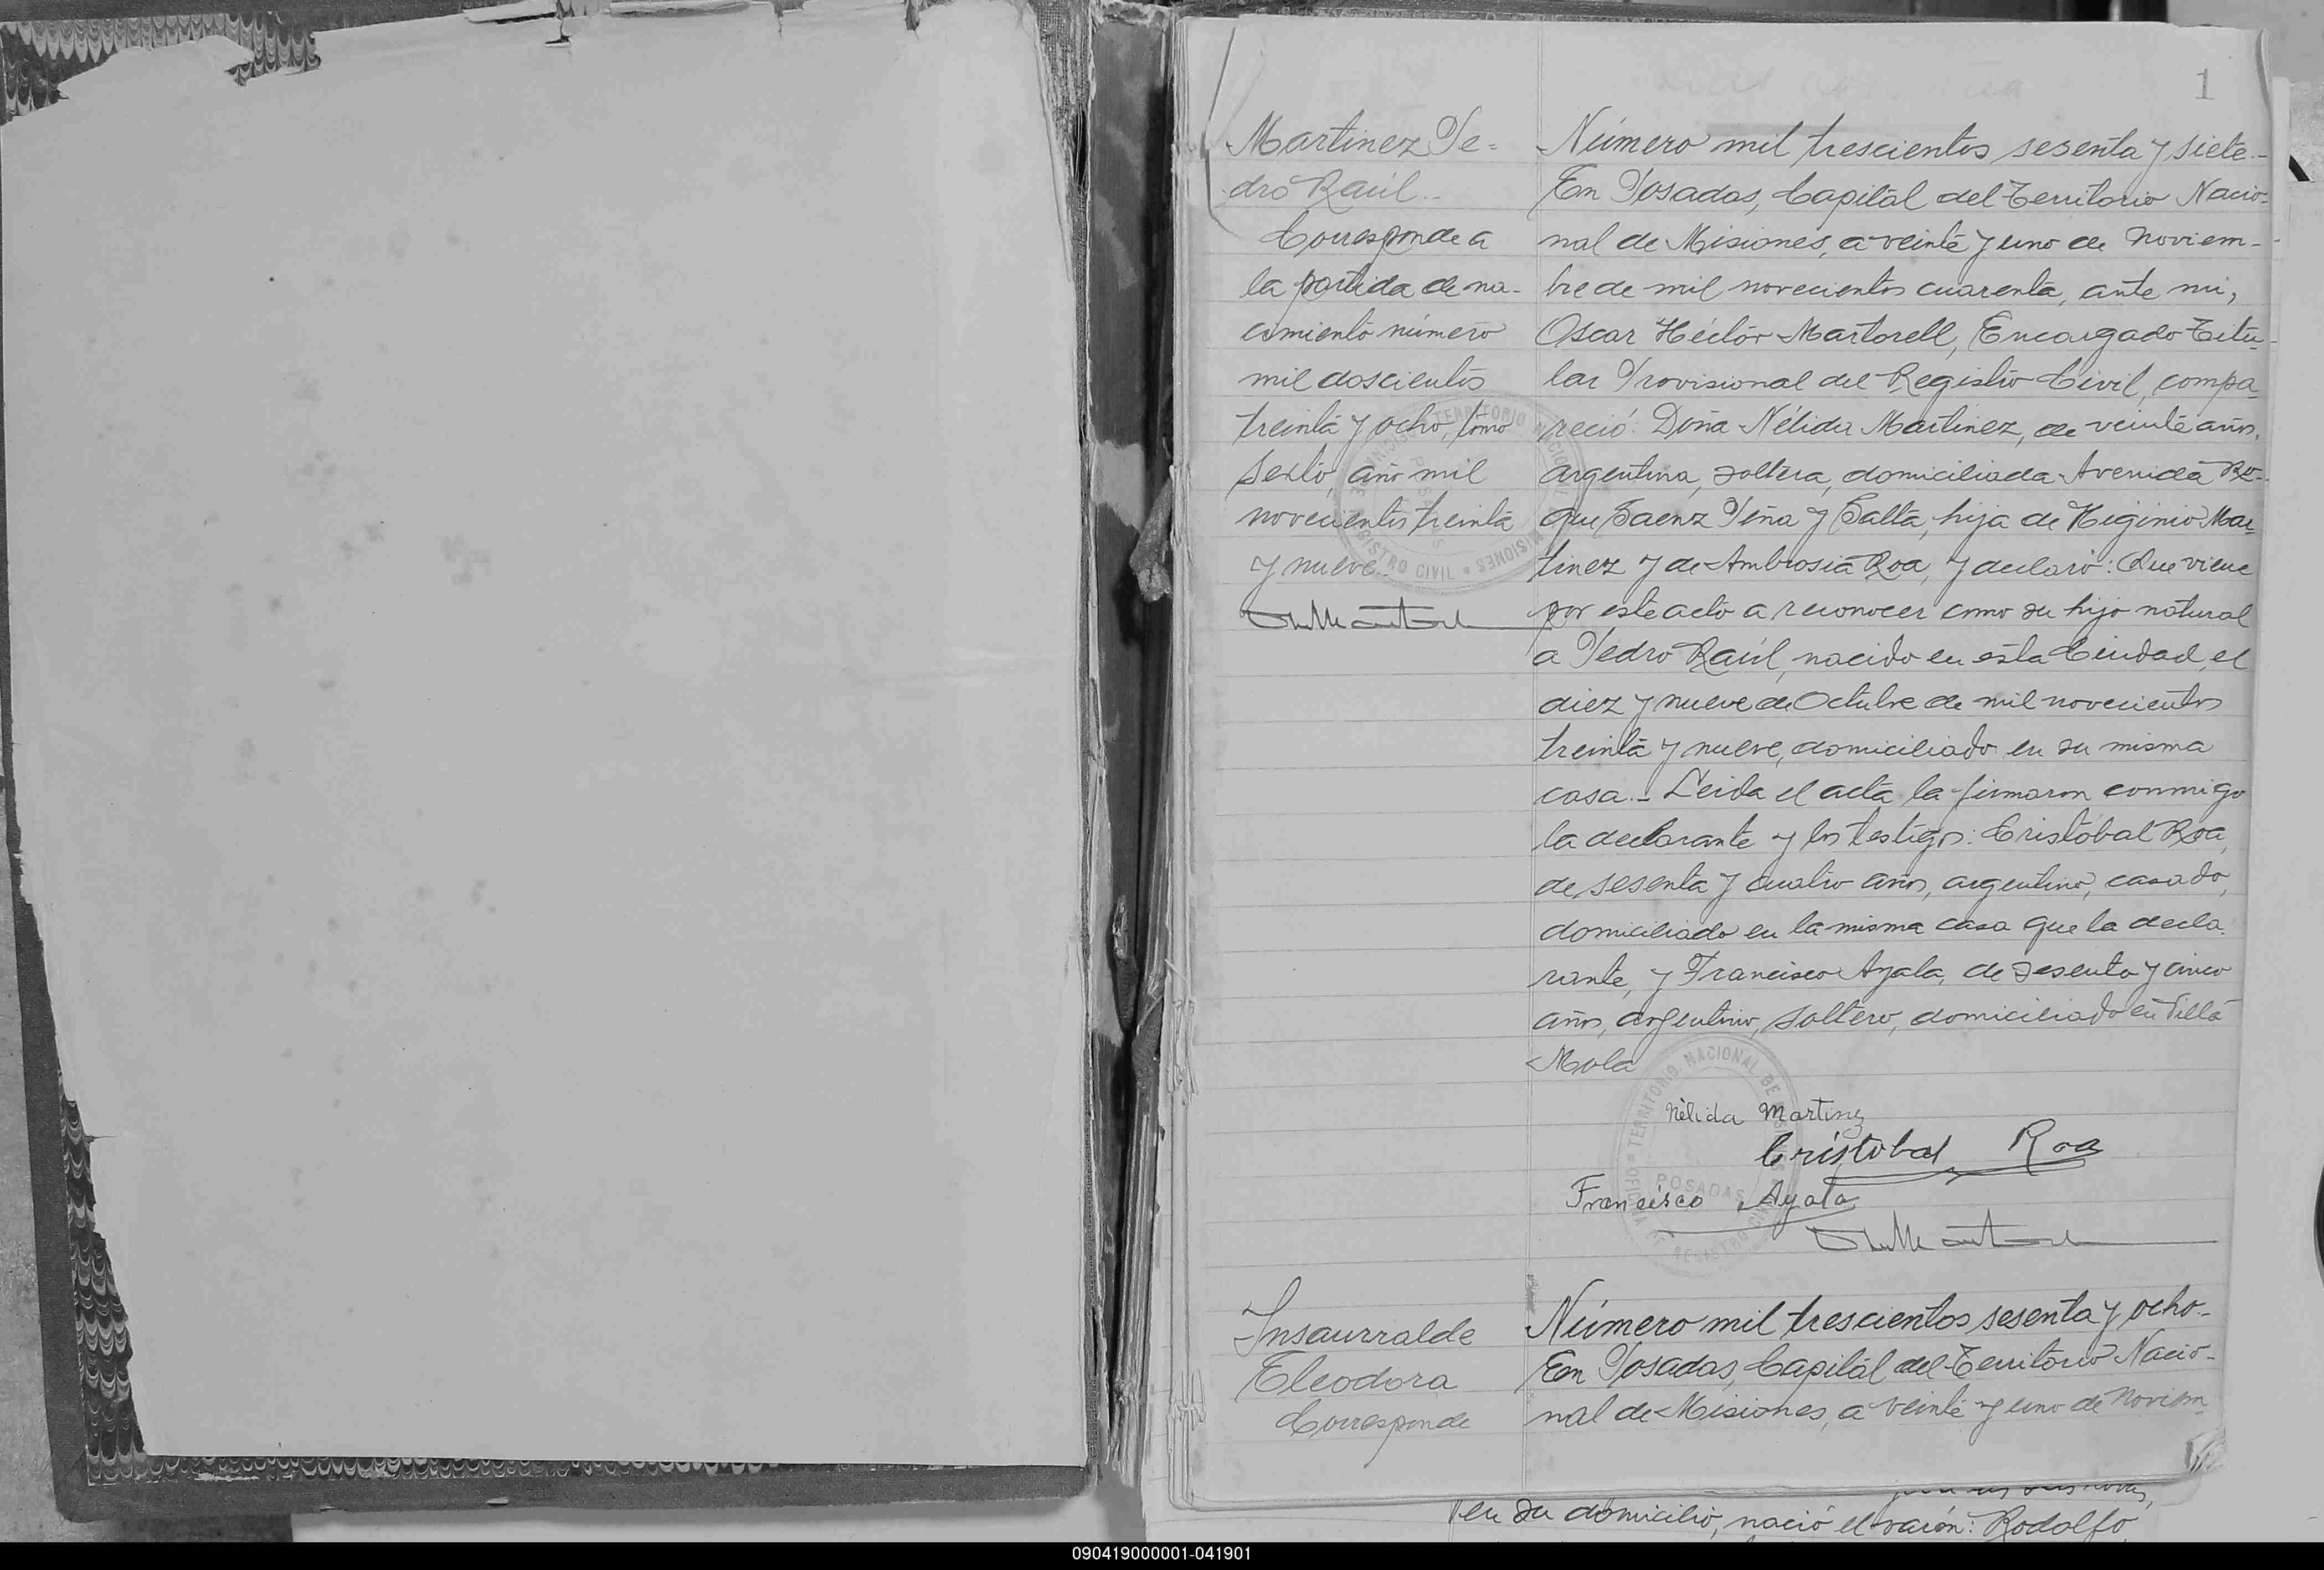 1
Martinez Pe=
dro Raúl..
Corresponde a
la partida de na-
cimiento número
mil doscientos
treinta y ocho, tomo
sexto, año mil
novecientos treinta
y nueve.
Número mil trescientos sesenta y siete.-
En Posadas, Capital del Territorio Nacio-
nal de Misiones, a veinte y uno de Noviem-
bre de mil novecientos cuarenta, ante mi,
Oscar Héctor Martorell, Encargado Titu-
lar Provisional del Registro Civil, compa-
reció: Doña Nélida Martinez, de veinte años,
argentina, soltera, domiciliada Avenida Ro-
que Saenz Peña y Salta, hija de Higinio Mar-
tinez y de Ambrosia Roa, y declaró: Que viene
por este acto a reconocer como su hijo natural
a Pedro Raúl, nacido en esta Ciudad, el
diez y nueve de Octubre de mil novecientos
treinta y nueve, domiciliado en su misma
casa.- Leida el acta la firmaron conmigo
la declarante y los testigos: Cristóbal Roa,
de sesenta y cuatro años, argentino, casado,
domiciliado en la misma casa que la decla-
rante, y Francisco Ayala, de sesenta y cinco
años, argentino, soltero, domiciliado en Villa
Mola
Nélida Martinez
Cristobal Roa
Francisco Ayala
TERRITORIO NACIONAL DE MISIONES
POSADAS
REGISTRO CIVIL
Insaurralde
Eleodora
Corresponde
Número mil trescientos sesenta y ocho.-
En Posadas, Capital del Territorio Nacio-
nal de Misiones, a veinte y uno de Noviem-
en su domicilio, nació el varón: Rodolfo
090419000001-041901